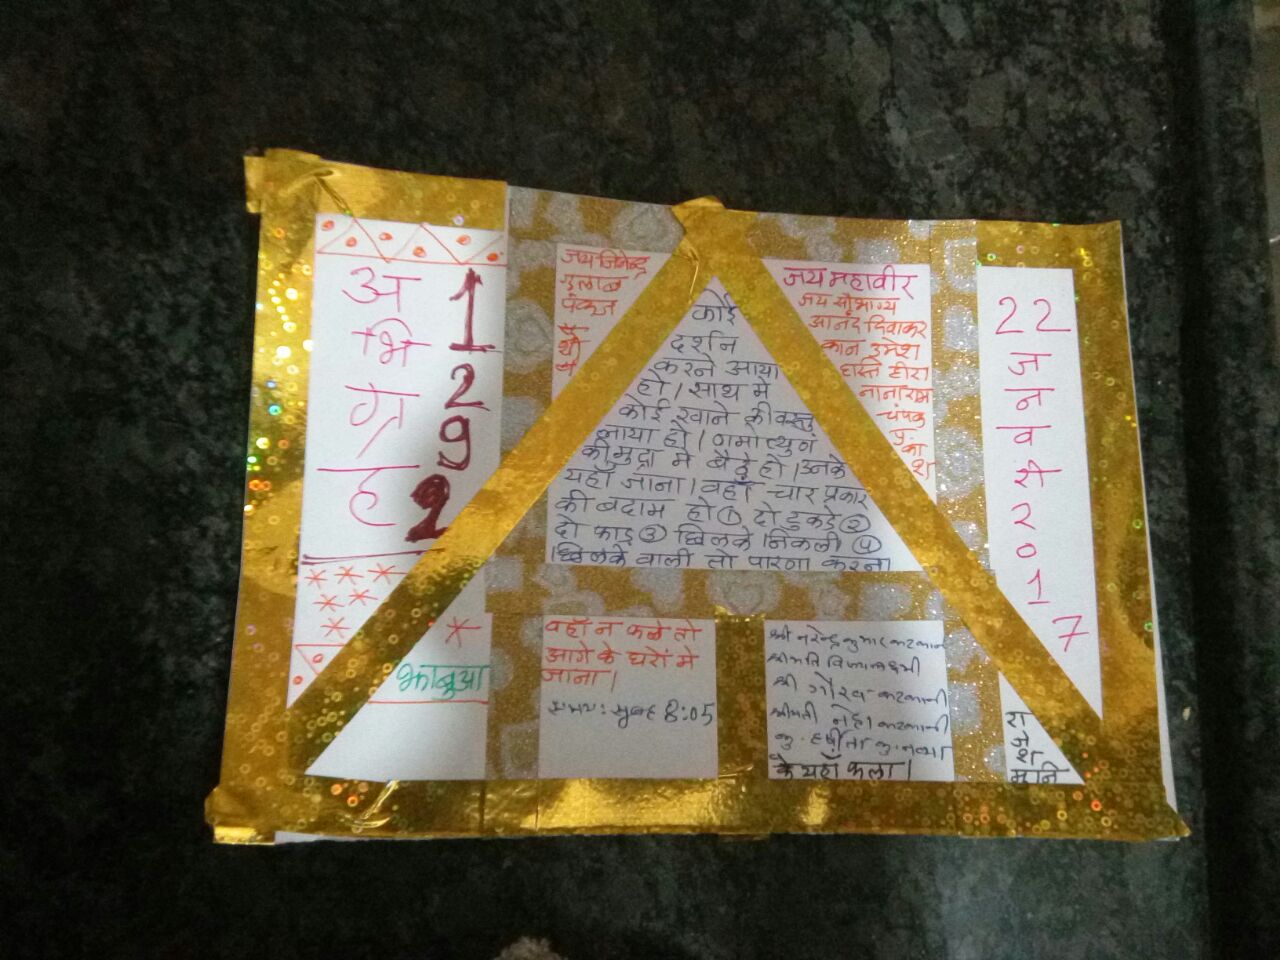 अ
भि
ग्र
ह
1
2
9
2
झाबुआ
जय जिनेन्द्र
गुलाब
पंकज
जय महावीर
जय सौभाग्य
आनंद दिवाकर
कान उमेश
हस्ति हीरा
नानाराम
चंपक
प्र
का
श
कोई
दर्शन
करने आया
हो। साथ मे
कोई खाने की वस्तु
लाया हो। नमोत्थुनं
की मुद्रा मे बैठे हो। उनके
यहाँ जाना। वहाँ चार प्रकार
की बदाम हो ① दो टुकडे ②
दो फाड ③ छिलके निकली ④
छिलके वाली तो पारणा करना
वहाँ न फले तो
आगे के घरों मे
जाना।
समय: सुबह 8:05
श्री नरेन्द्र कुमार कटकानी
श्रीमति विजयलक्ष्मी
श्री गौरव कटकानी
श्रीमती नेहा कटकानी
कु. हर्षिता कु. नव्या
के यहाँ फला।
22
ज
न
व
री
2
0
1
7
रा
जे
श
मुनि